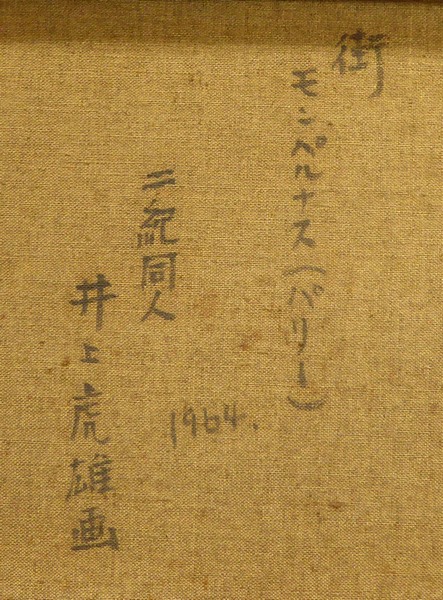 街
モンペルナス(パリー)
二紀同人
1964.
井上虎雄画